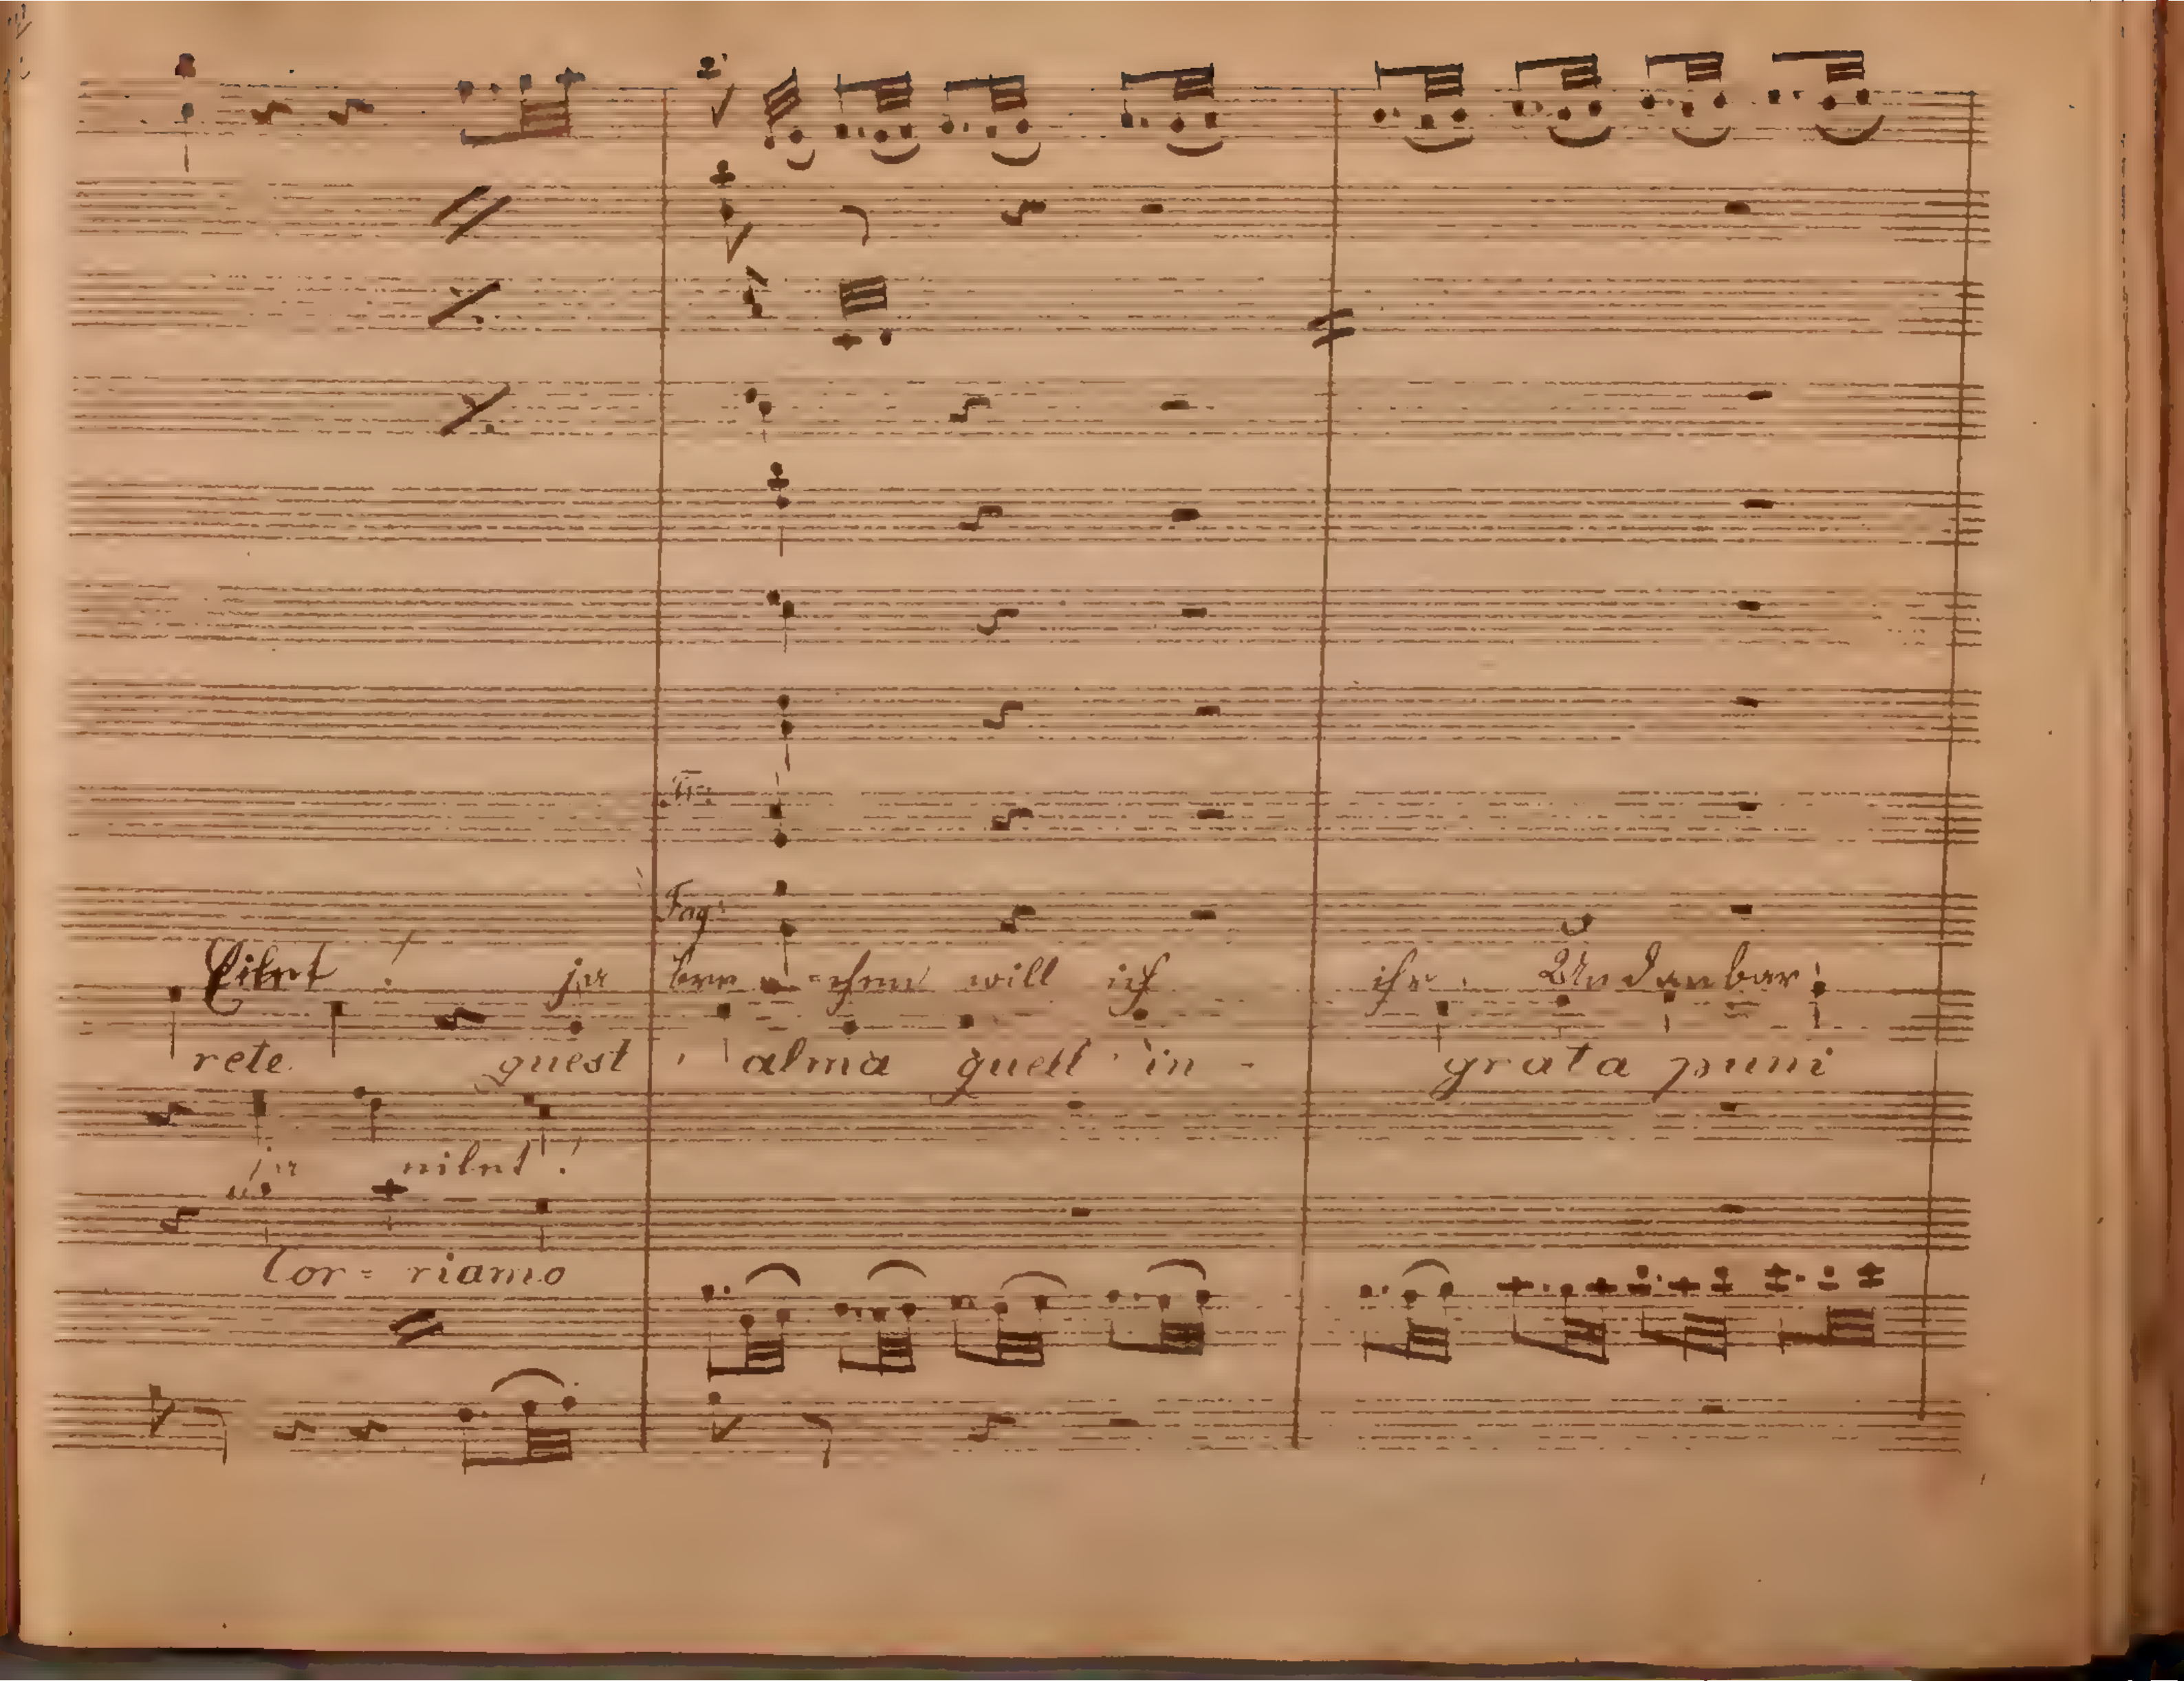 Fag:
Eilet! ja will ich ihr Undankbar
rete quest' alma quell' in - grata puni
ja eilet!
Cor= riamo